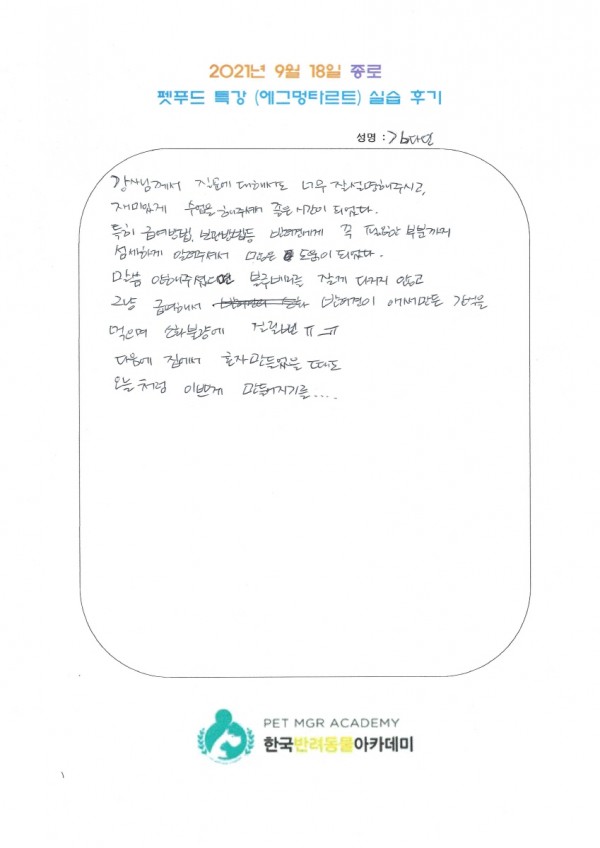 2021년 9월 18일 종로
펫푸드 특강 (에그멍타르트) 실습 후기
성명 : 김다인
강사님께서 질문에 대해서도 너무 잘 설명해주시고,
재미있게 수업을 해주셔서 좋은 시간이 되었다.
특히 급여방법, 보관방법등 반려견에게 꼭 필요한 부분까지
섬세하게 알려주셔서 많은 도움이 되었다.
말씀 안해주셨으면 블루베리를 잘게 다지지 않고
그냥 급여해서 반려견이 애써만든 간식을
먹으며 소화불량에 걸릴뻔 ㅠ_ㅠ
다음에 집에서 혼자만들었을 때도
오늘처럼 이쁘게 만들어지기를....
PET MGR ACADEMY
한국반려동물아카데미